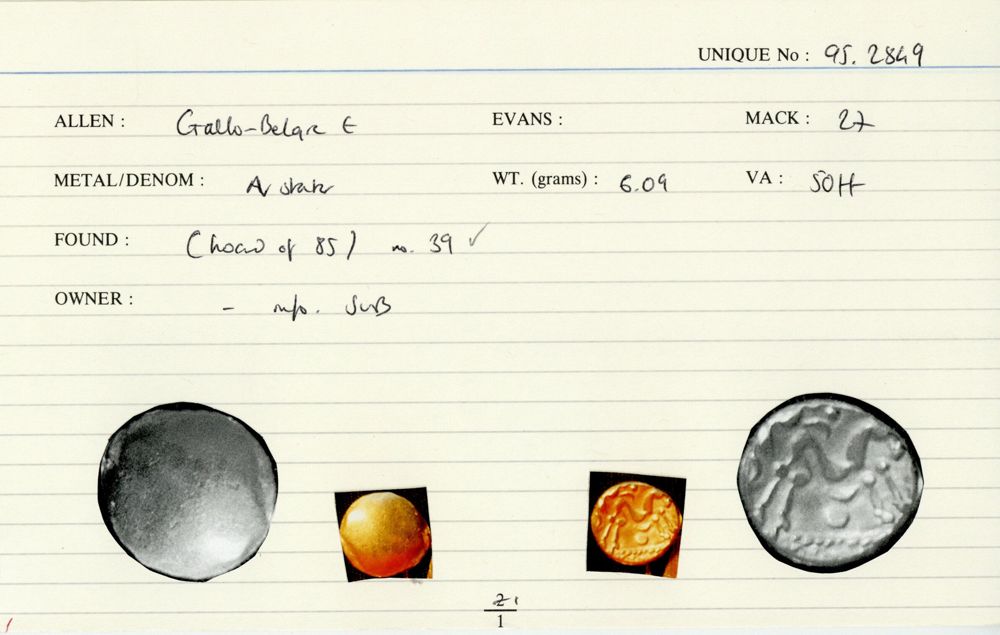 UNIQUE No : 95. 2849
ALLEN : Gallo-Belgic E EVANS : MACK : 27
METAL/DENOM : AV stater WT. (grams) : 6.09 VA : 50ff
FOUND : (hoard of 85) no. 39 ✓
OWNER : - info.
1